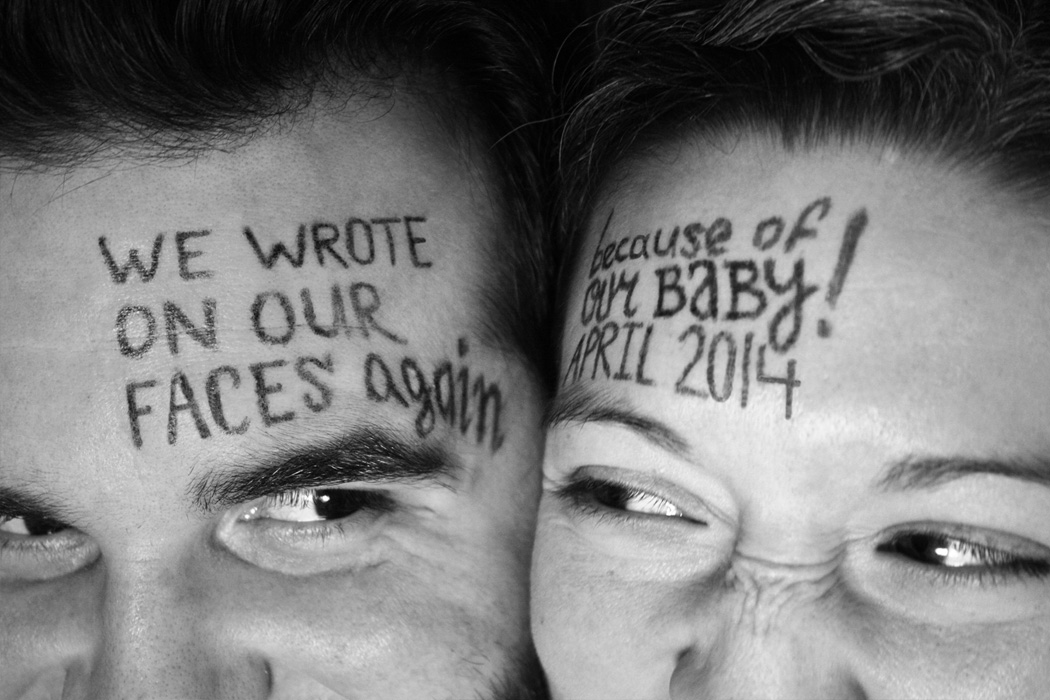 WE WROTE
ON OUR
FACES again
because of
our BaBy!
APRIL 2014